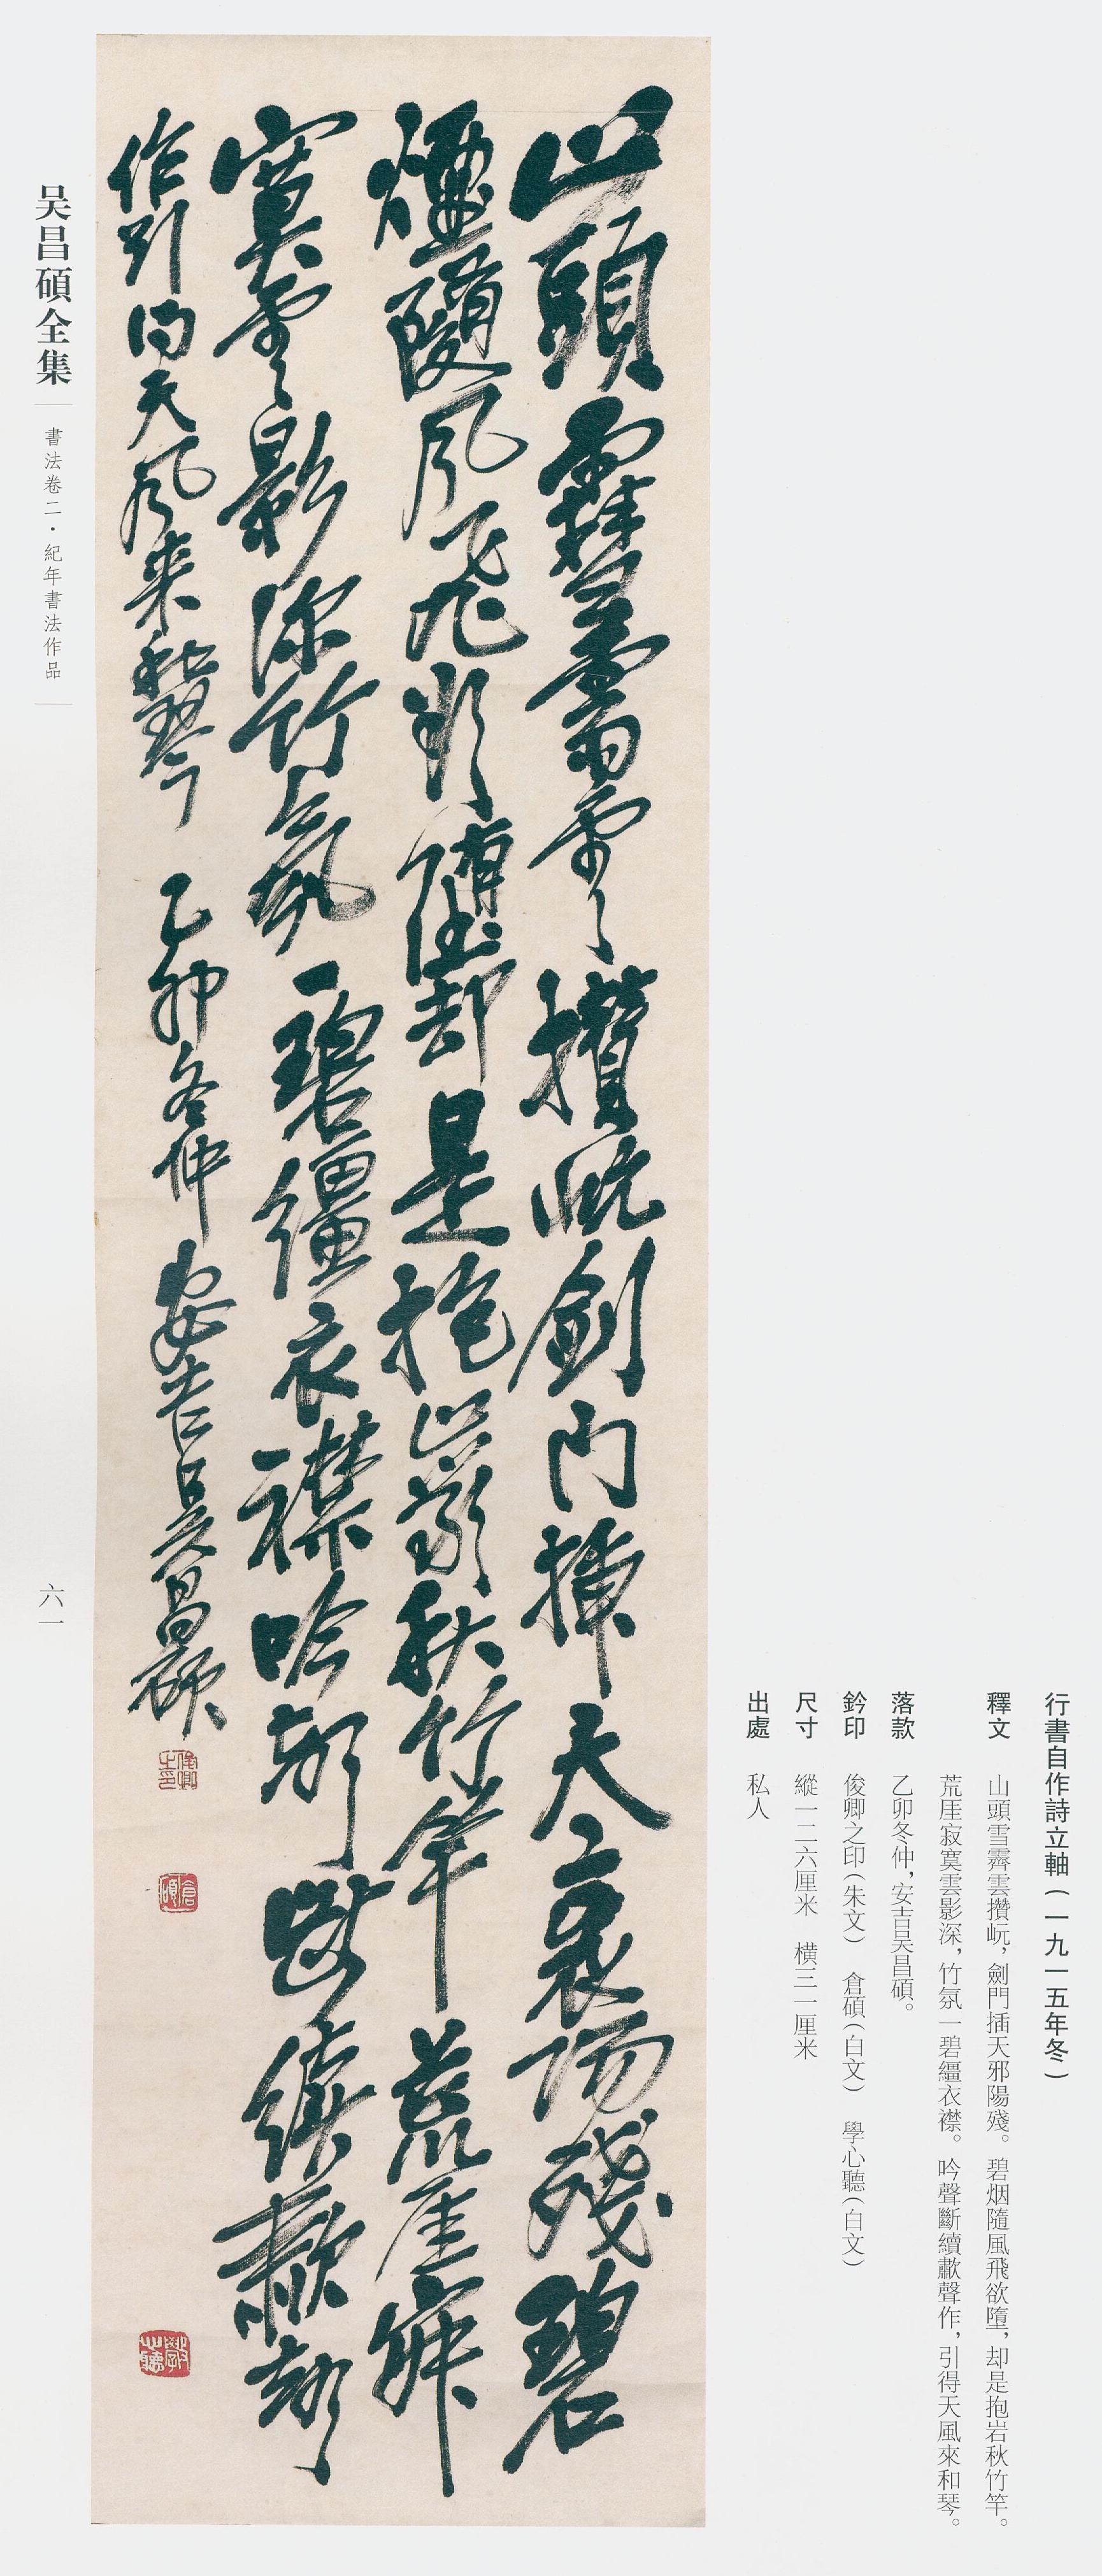 行書自作詩立軸(一九一五年冬)
釋文 山頭雪霽雲攢岏,劍門插天邪陽殘。碧烟隨風飛欲墮,却是抱岩秋竹竿。
荒厓寂寞雲影深,竹氛一碧繮衣襟。吟聲斷續歗聲作,引得天風來和琴。
落款 乙卯冬仲,安吉吴昌碩。
鈐印 俊卿之印(朱文) 倉碩(白文) 學心聽(白文)
尺寸 縱一二六厘米 橫三一厘米
出處 私人
山頭雪霽雲攢岏劍門插天衺陽殘碧
煙隨風飛欲墮却是抱巖秋竹竿荒厓寂
寞雲影深竹氛一碧繮衣襟吟聲斷續歗聲
作引得天風來和琴 乙卯冬仲 安吉吳昌碩
俊卿之印
倉碩
學心聽
吴昌碩全集
書法卷二·紀年書法作品
六一